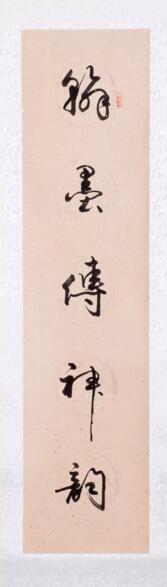 翰墨傳神韵